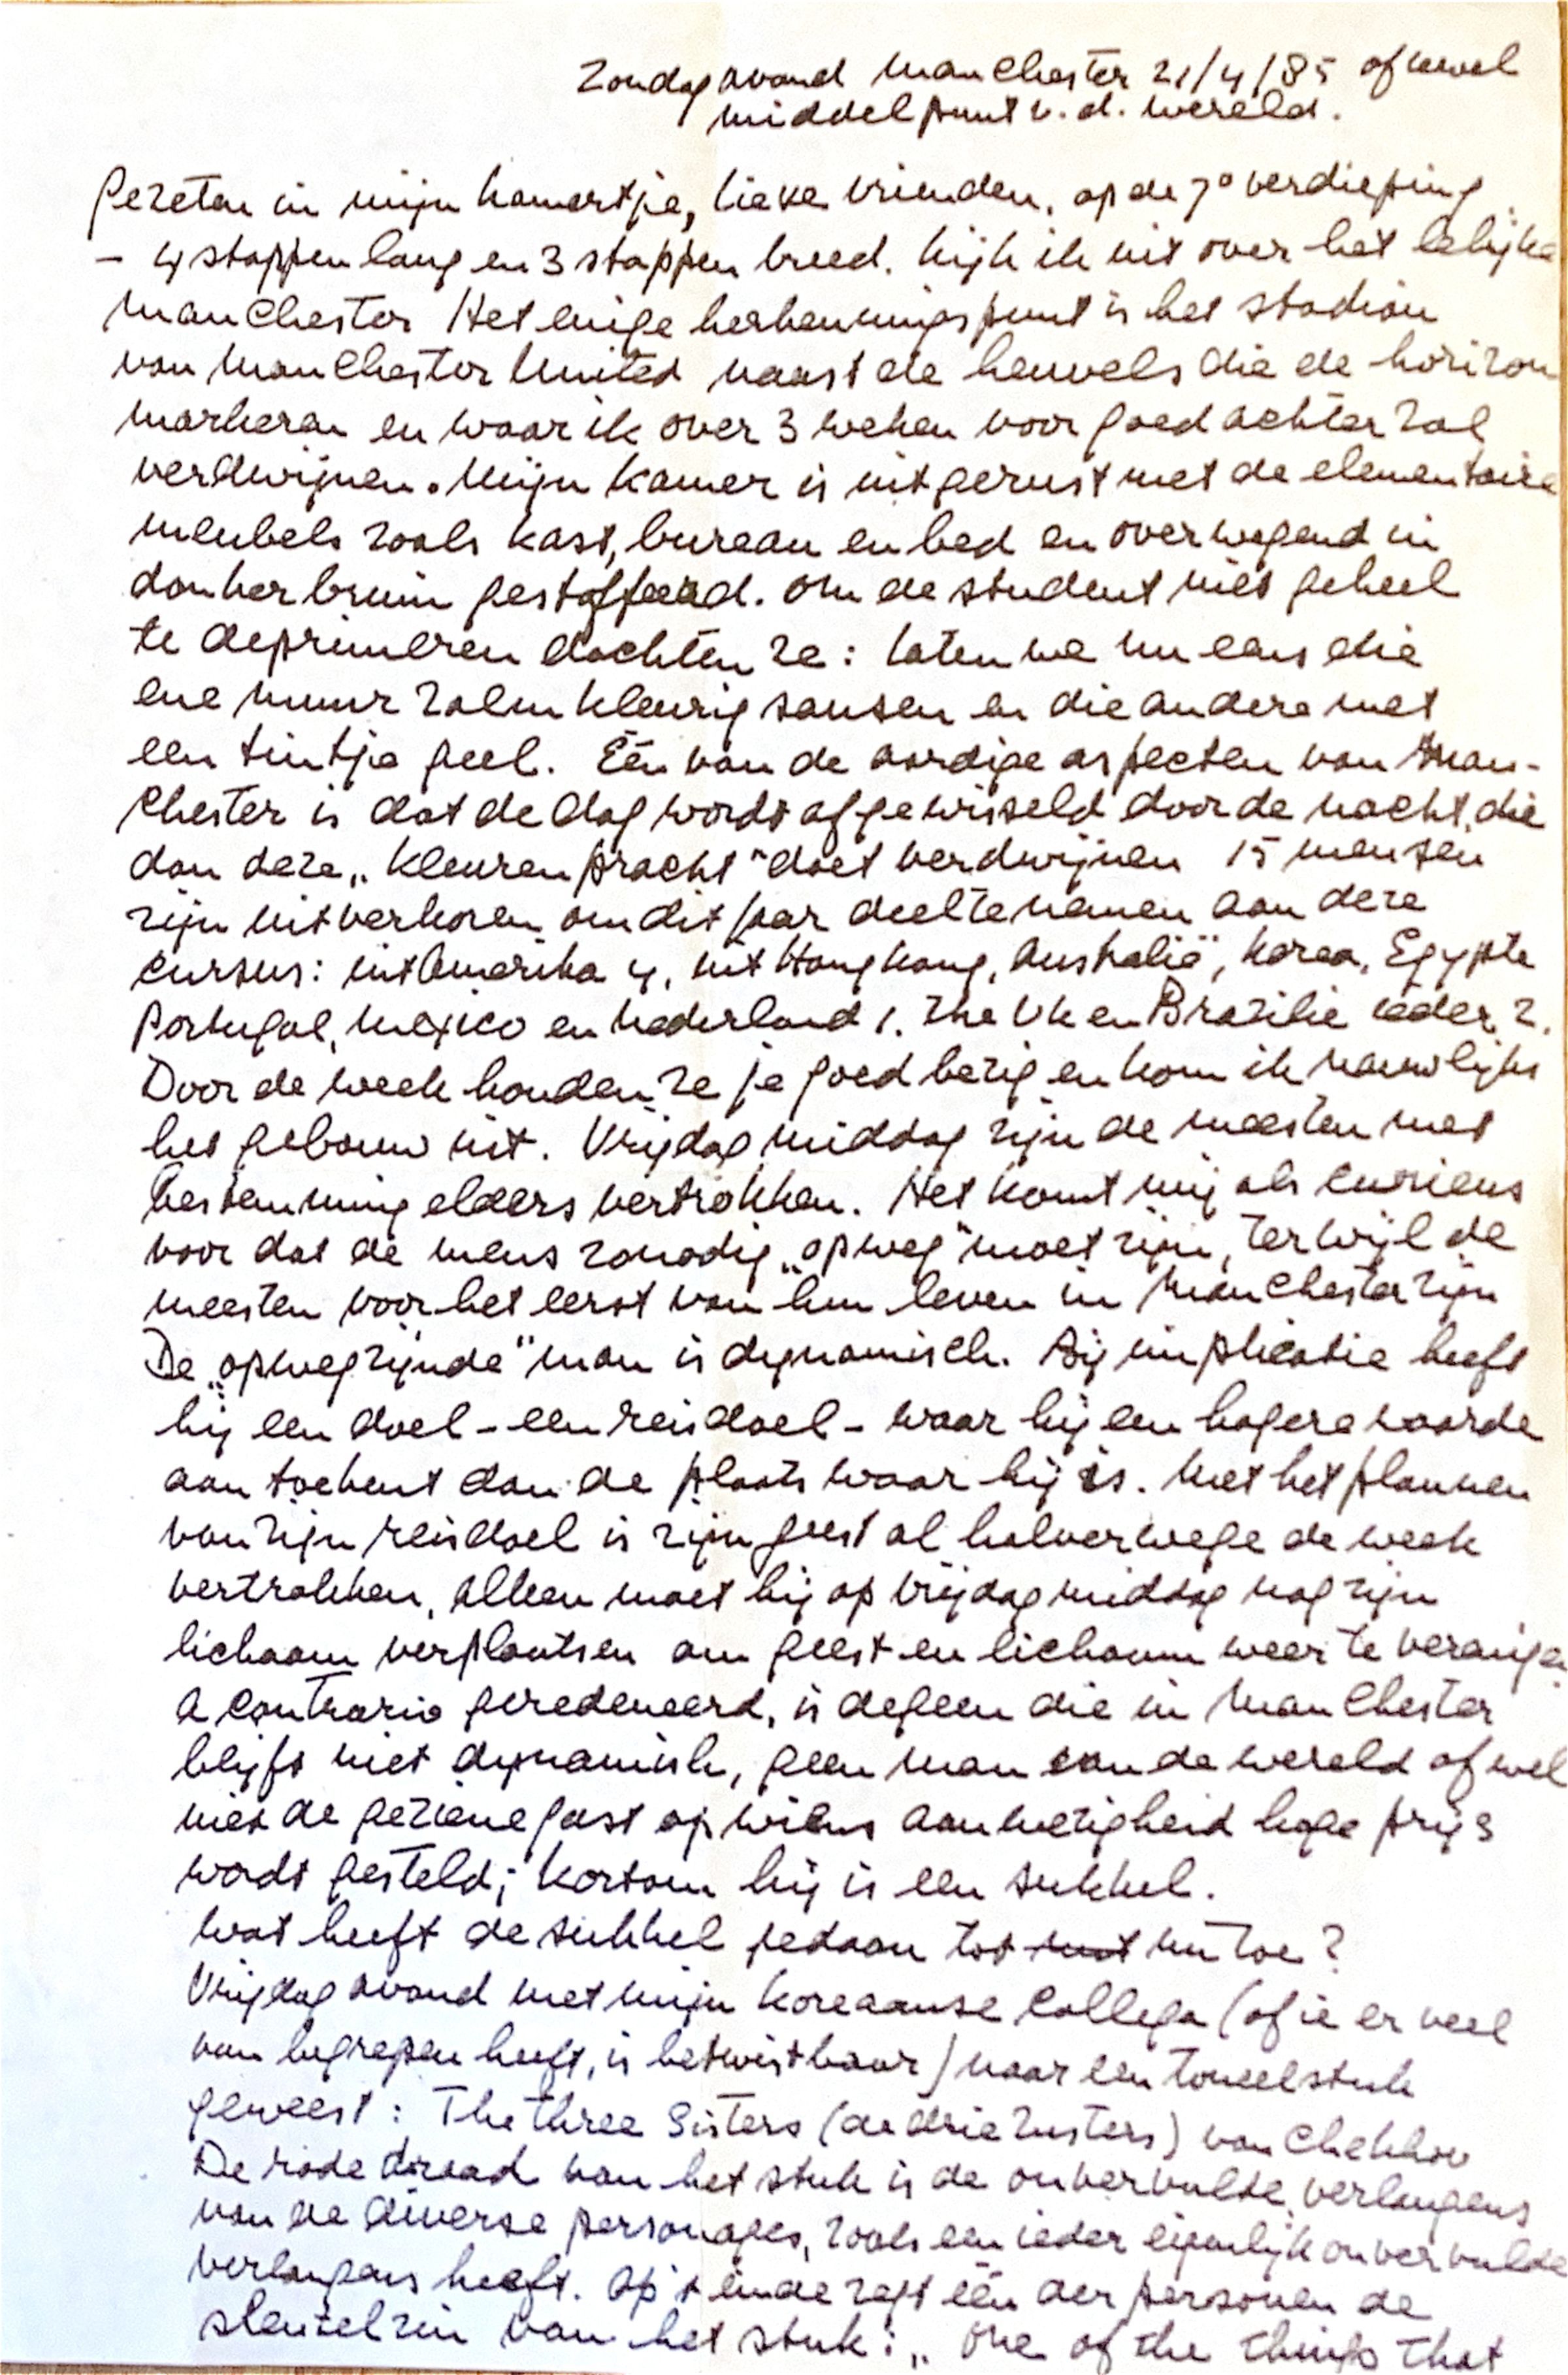 Zondagavond Manchester 21/4/85 oftewel
middelpunt v.d. wereld.
Gezeten in mijn kamertje, lieve vrienden, op de 7e verdieping
- 4 stappen lang en 3 stappen breed. kijk ik uit over het lelijke
Manchester Het enige herkenningspunt is het stadion
van Manchester United naast de heuvels die de horizon
markeren en waar ik over 3 weken voor goed achter zal
verdwijnen. Mijn kamer is uitgerust met de elementaire
meubels zoals kast, bureau en bed en overwegend in
donker bruin gestoffeerd. Om de student niet geheel
te deprimeren dachten ze: laten we nu eens die
ene muur zalmkleurig sausen en die andere met
een tintje geel. Één van de aardige aspecten van Man-
chester is dat de dag wordt afgewisseld door de nacht, die
dan deze „kleurenpracht" doet verdwijnen 15 mensen
zijn uitverkoren om dit jaar deel te nemen aan deze
cursus: uit Amerika 4, uit Hong kong, Australië, Korea, Egypte
Portugal, Mexico en Nederland 1. The UK en Brazilie ieder 2.
Door de week houden ze je goed bezig en kom ik nauwelijks
het gebouw uit. Vrijdag middag zijn de meesten met
bestemming elders vertrokken. Het komt mij als curieus
voor dat de mens zonodig „op weg" moet zijn, terwijl de
meesten voor het eerst van hun leven in Manchester zijn
De „opwegzijnde" man is dynamisch. Bij implicatie heeft
hij een doel - een reisdoel - waar hij een hogere waarde
aan toekent dan de plaats waar hij is. Met het plannen
van zijn reisdoel is zijn geest al halverwege de week
vertrokken, alleen moet hij op vrijdagmiddag nog zijn
lichaam verplaatsen om geest en lichaam weer te verenigen
a contrario geredeneerd, is degeen die in Manchester
blijft niet dynamisch, geen man van de wereld ofwel
niet de geziene gast op wiens aanwezigheid hoge prijs
wordt gesteld; kortom hij is een sukkel.
Wat heeft de sukkel gedaan tot nu toe?
Vrijdag avond met mijn Koreaanse collega (of ie er veel
van begrepen heeft, is betwistbaar) naar een toneelstuk
geweest: The three Sisters (de drie zusters) van Chekhov
De rode draad van het stuk is de onvervulde verlangens
van de diverse personages, zoals een ieder eigenlijk onvervulde
verlangens heeft. Op 't einde zegt één der personen de
sleutelzin van het stuk: „ One of the things that